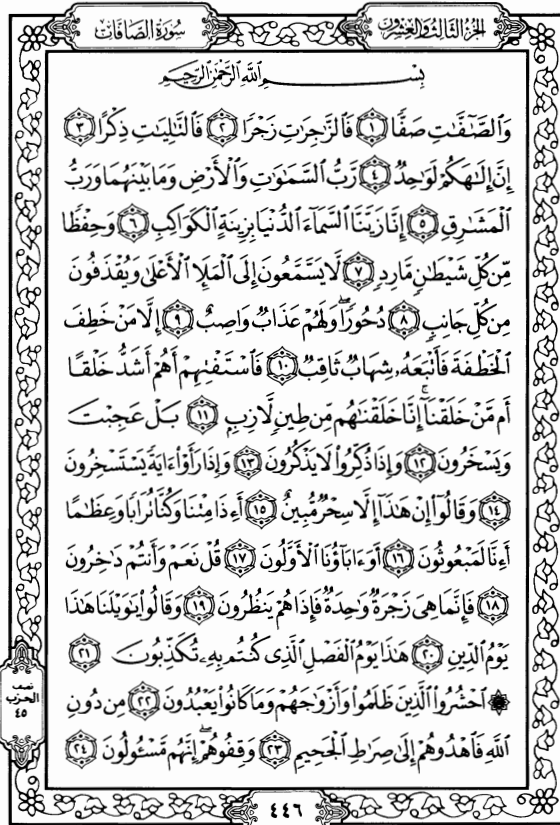 الجزء الثالث والعشرون
سورة الصافات
بِسْمِ اللَّهِ الرَّحْمَٰنِ الرَّحِيمِ
وَالصَّٰٓفَّٰتِ صَفًّا ١ فَالزَّٰجِرَٰتِ زَجْرًا ٢ فَالتَّٰلِيَٰتِ ذِكْرًا ٣
إِنَّ إِلَٰهَكُمْ لَوَٰحِدٌ ٤ رَّبُّ السَّمَٰوَٰتِ وَالْأَرْضِ وَمَا بَيْنَهُمَا وَرَبُّ
الْمَشَٰرِقِ ٥ إِنَّا زَيَّنَّا السَّمَآءَ الدُّنْيَا بِزِينَةٍ الْكَوَاكِبِ ٦ وَحِفْظًا
مِّن كُلِّ شَيْطَٰنٍ مَّارِدٍ ٧ لَّا يَسَّمَّعُونَ إِلَى الْمَلَإِ الْأَعْلَىٰ وَيُقْذَفُونَ
مِن كُلِّ جَانِبٍ ٨ دُحُورًا ۖ وَلَهُمْ عَذَابٌ وَاصِبٌ ٩ إِلَّا مَنْ خَطِفَ
الْخَطْفَةَ فَأَتْبَعَهُۥ شِهَابٌ ثَاقِبٌ ١٠ فَاسْتَفْتِهِمْ أَهُمْ أَشَدُّ خَلْقًا
أَم مَّنْ خَلَقْنَآ ۚ إِنَّا خَلَقْنَٰهُم مِّن طِينٍ لَّازِبٍ ١١ بَلْ عَجِبْتَ
وَيَسْخَرُونَ ١٢ وَإِذَا ذُكِّرُوا۟ لَا يَذْكُرُونَ ١٣ وَإِذَا رَأَوْا۟ ءَايَةً يَسْتَسْخِرُونَ
١٤ وَقَالُوٓا۟ إِنْ هَٰذَآ إِلَّا سِحْرٌ مُّبِينٌ ١٥ أَءِذَا مِتْنَا وَكُنَّا تُرَابًا وَعِظَٰمًا
أَءِنَّا لَمَبْعُوثُونَ ١٦ أَوَءَابَآؤُنَا الْأَوَّلُونَ ١٧ قُلْ نَعَمْ وَأَنتُمْ دَٰخِرُونَ
١٨ فَإِنَّمَا هِىَ زَجْرَةٌ وَٰحِدَةٌ فَإِذَا هُمْ يَنظُرُونَ ١٩ وَقَالُوا۟ يَٰوَيْلَنَا هَٰذَا
يَوْمُ الدِّينِ ٢٠ هَٰذَا يَوْمُ الْفَصْلِ الَّذِى كُنتُم بِهِۦ تُكَذِّبُونَ ٢١
۞ احْشُرُوا۟ الَّذِينَ ظَلَمُوا۟ وَأَزْوَٰجَهُمْ وَمَا كَانُوا۟ يَعْبُدُونَ ٢٢ مِن دُونِ
اللَّهِ فَاهْدُوهُمْ إِلَىٰ صِرَٰطِ الْجَحِيمِ ٢٣ وَقِفُوهُمْ ۖ إِنَّهُم مَّسْـُٔولُونَ ٢٤
نصف
الحزب
٤٥
٤٤٦